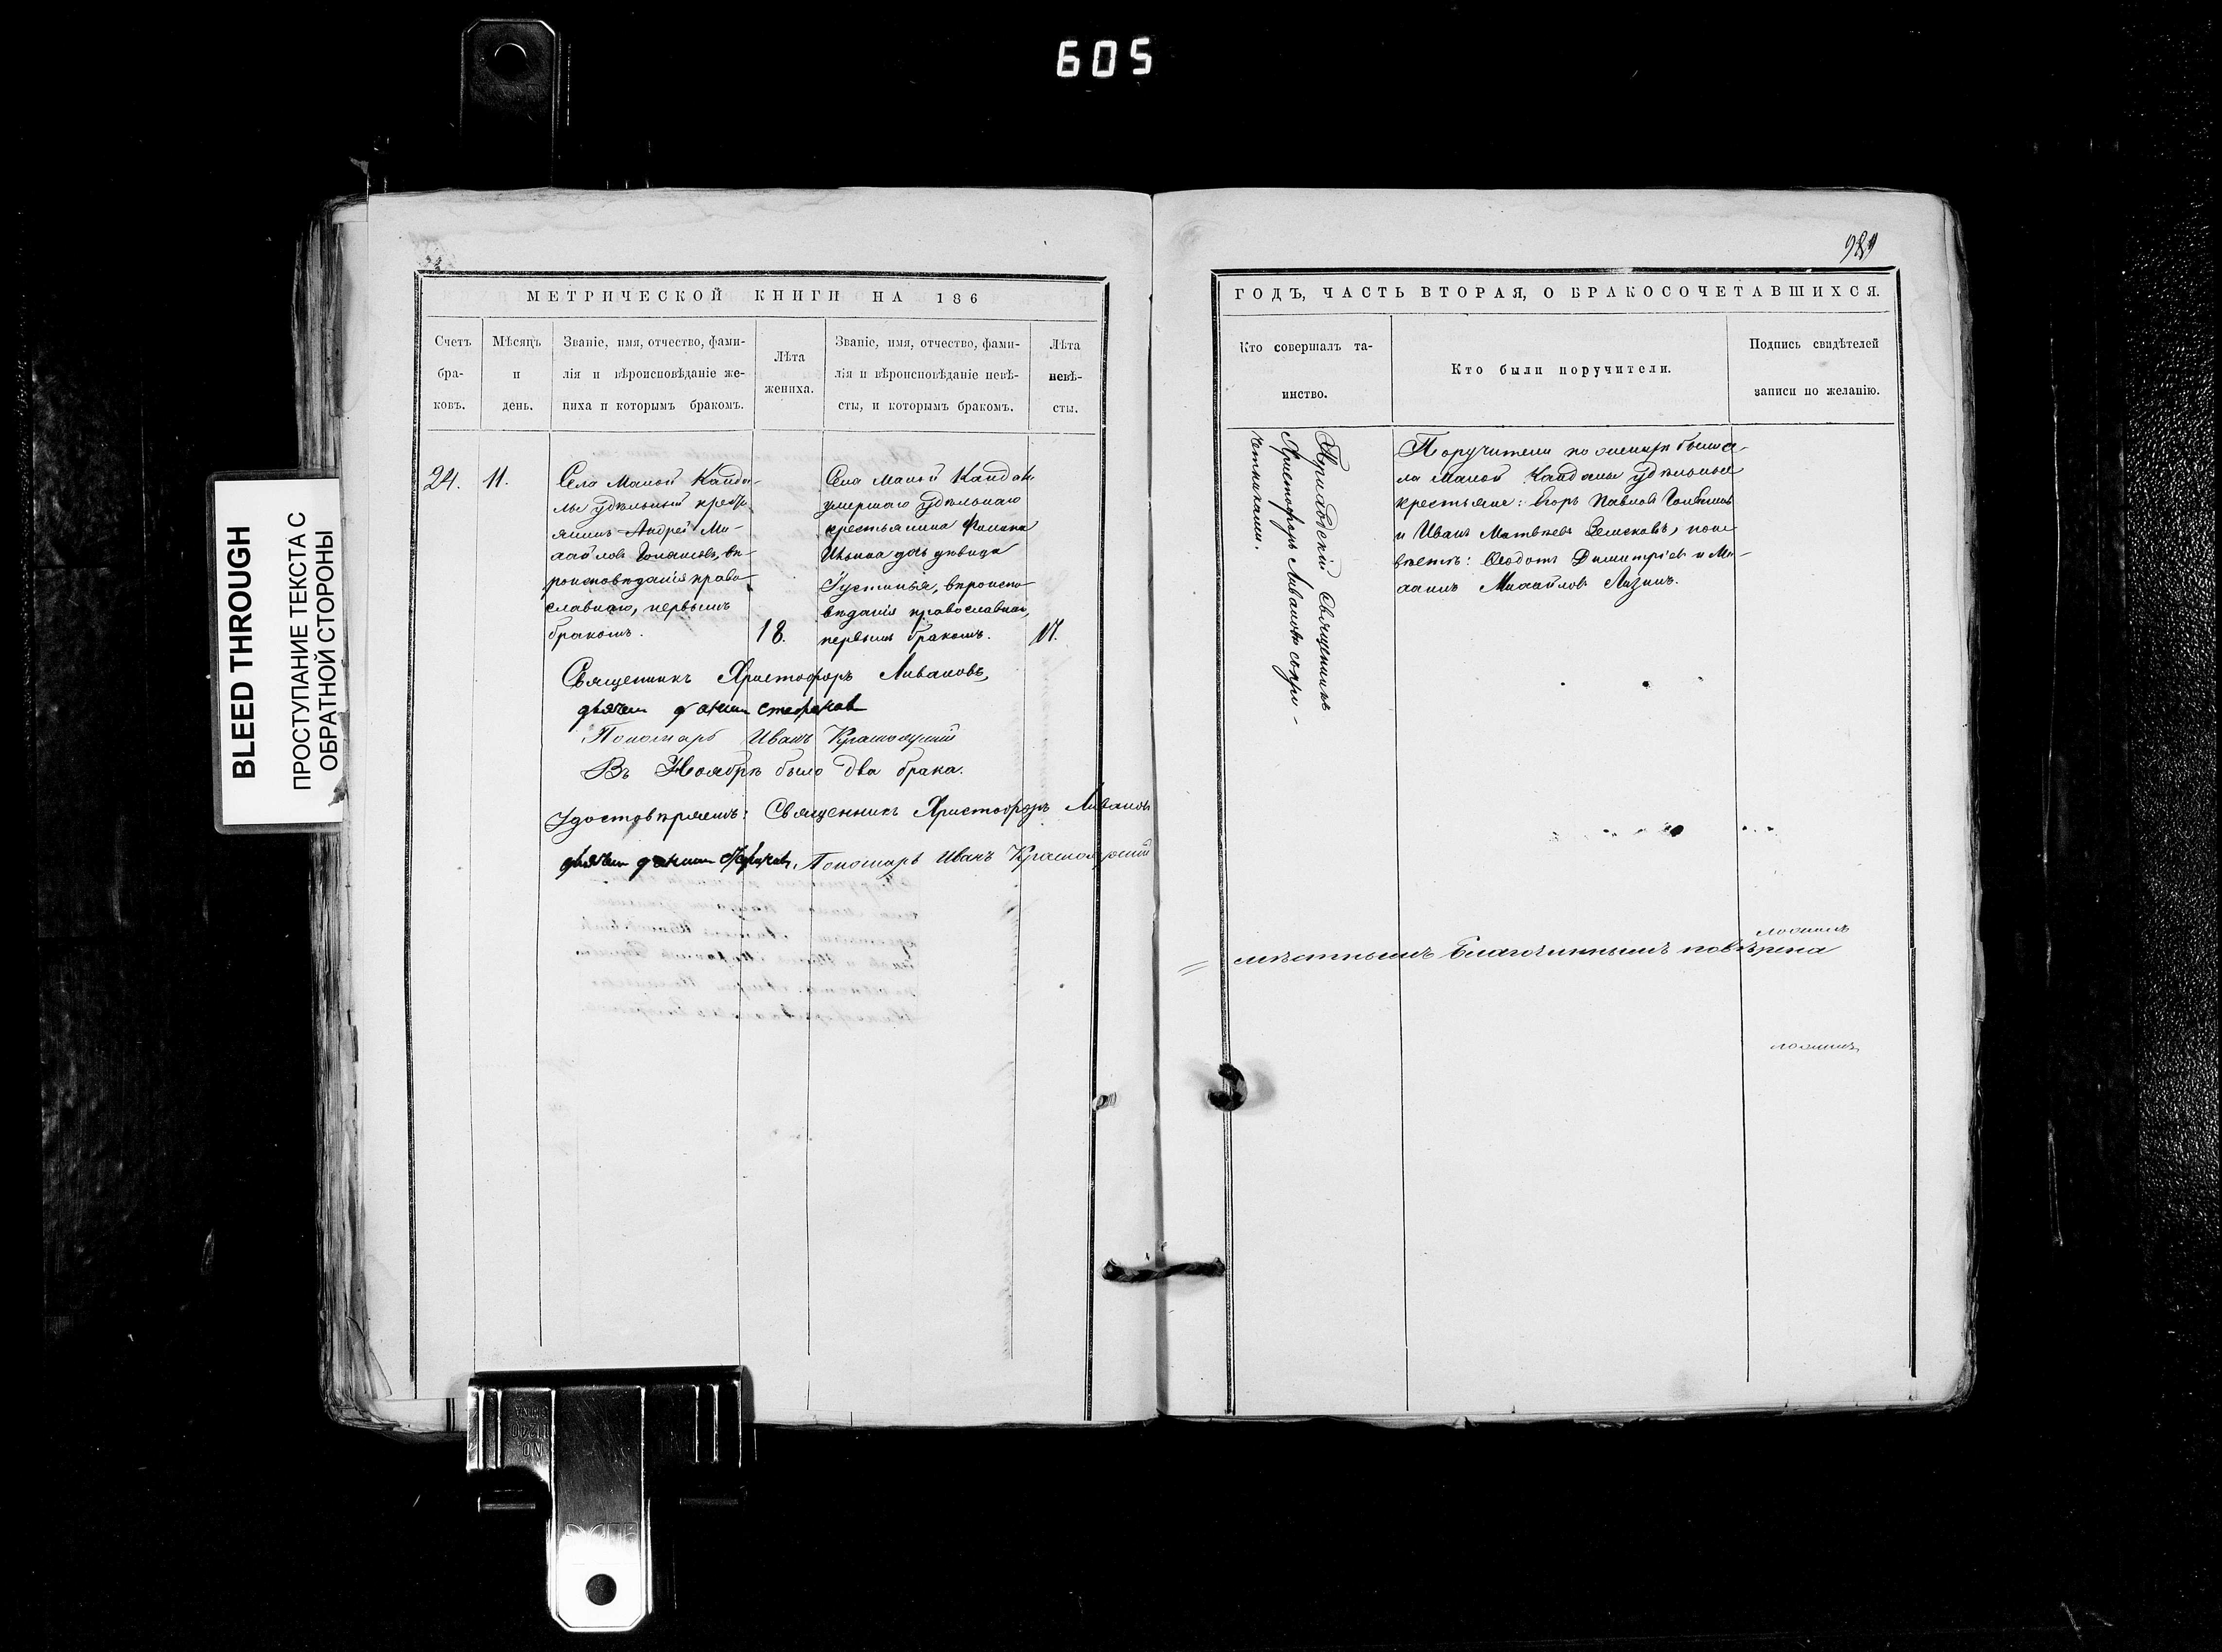 605
BLEED THROUGH
ПРОСТУПАНИЕ ТЕКСТА С
ОБРАТНОЙ СТОРОНЫ
МЕТРИЧЕСКОЙ КНИГИ НА 186
Счетъ
бра-
ковъ.
Мѣсяцъ
и
день.
Званіе, имя, отчество, фами-
лія и вѣроисповѣданіе же-
ниха и которымъ бракомъ.
Лѣта
жениха.
Званіе, имя, отчество, фами-
лія и вѣроисповѣданіе невѣ-
сты, и которымъ бракомъ.
Лѣта
невѣ-
сты.
24.
11.
Села Малой Канда-
лы удѣльный кресть-
янинъ Андрей Ми-
хайловъ вѣ-
роисповѣданія право-
славнаго, первымъ
бракомъ.
18.
Села Малой Кандалы
умершаго удѣльнаго
крестьянина Филипа
Ильина дочь дѣвица
Іустинья, вѣроиспо-
вѣданія православнаго,
первымъ бракомъ.
17.
Священникъ Христофоръ Ливановъ,
Пономарь Иванъ Красноярскій
Въ Ноябрѣ было два брака.
Удостовѣряемъ: Священникъ Христофоръ Ливановъ
Пономарь Иванъ Красноярскій
ГОДЪ, ЧАСТЬ ВТОРАЯ, О БРАКОСОЧЕТАВШИХСЯ.
Кто совершалъ та-
инство.
Кто были поручители.
Подпись свидѣтелей
записи по желанію.
Приходскій Священникъ
Христофоръ Ливановъ съ при-
четниками.
Поручители по женихѣ были се-
ла Малой Кандалы удѣльные
крестьяне: Егоръ Павловъ
и Иванъ Матвѣевъ по не-
вѣстѣ: Ѳеодотъ Димитріевъ и Ми-
хаилъ Михайловъ Лизинъ.
мѣстнымъ благочиннымъ повѣрена